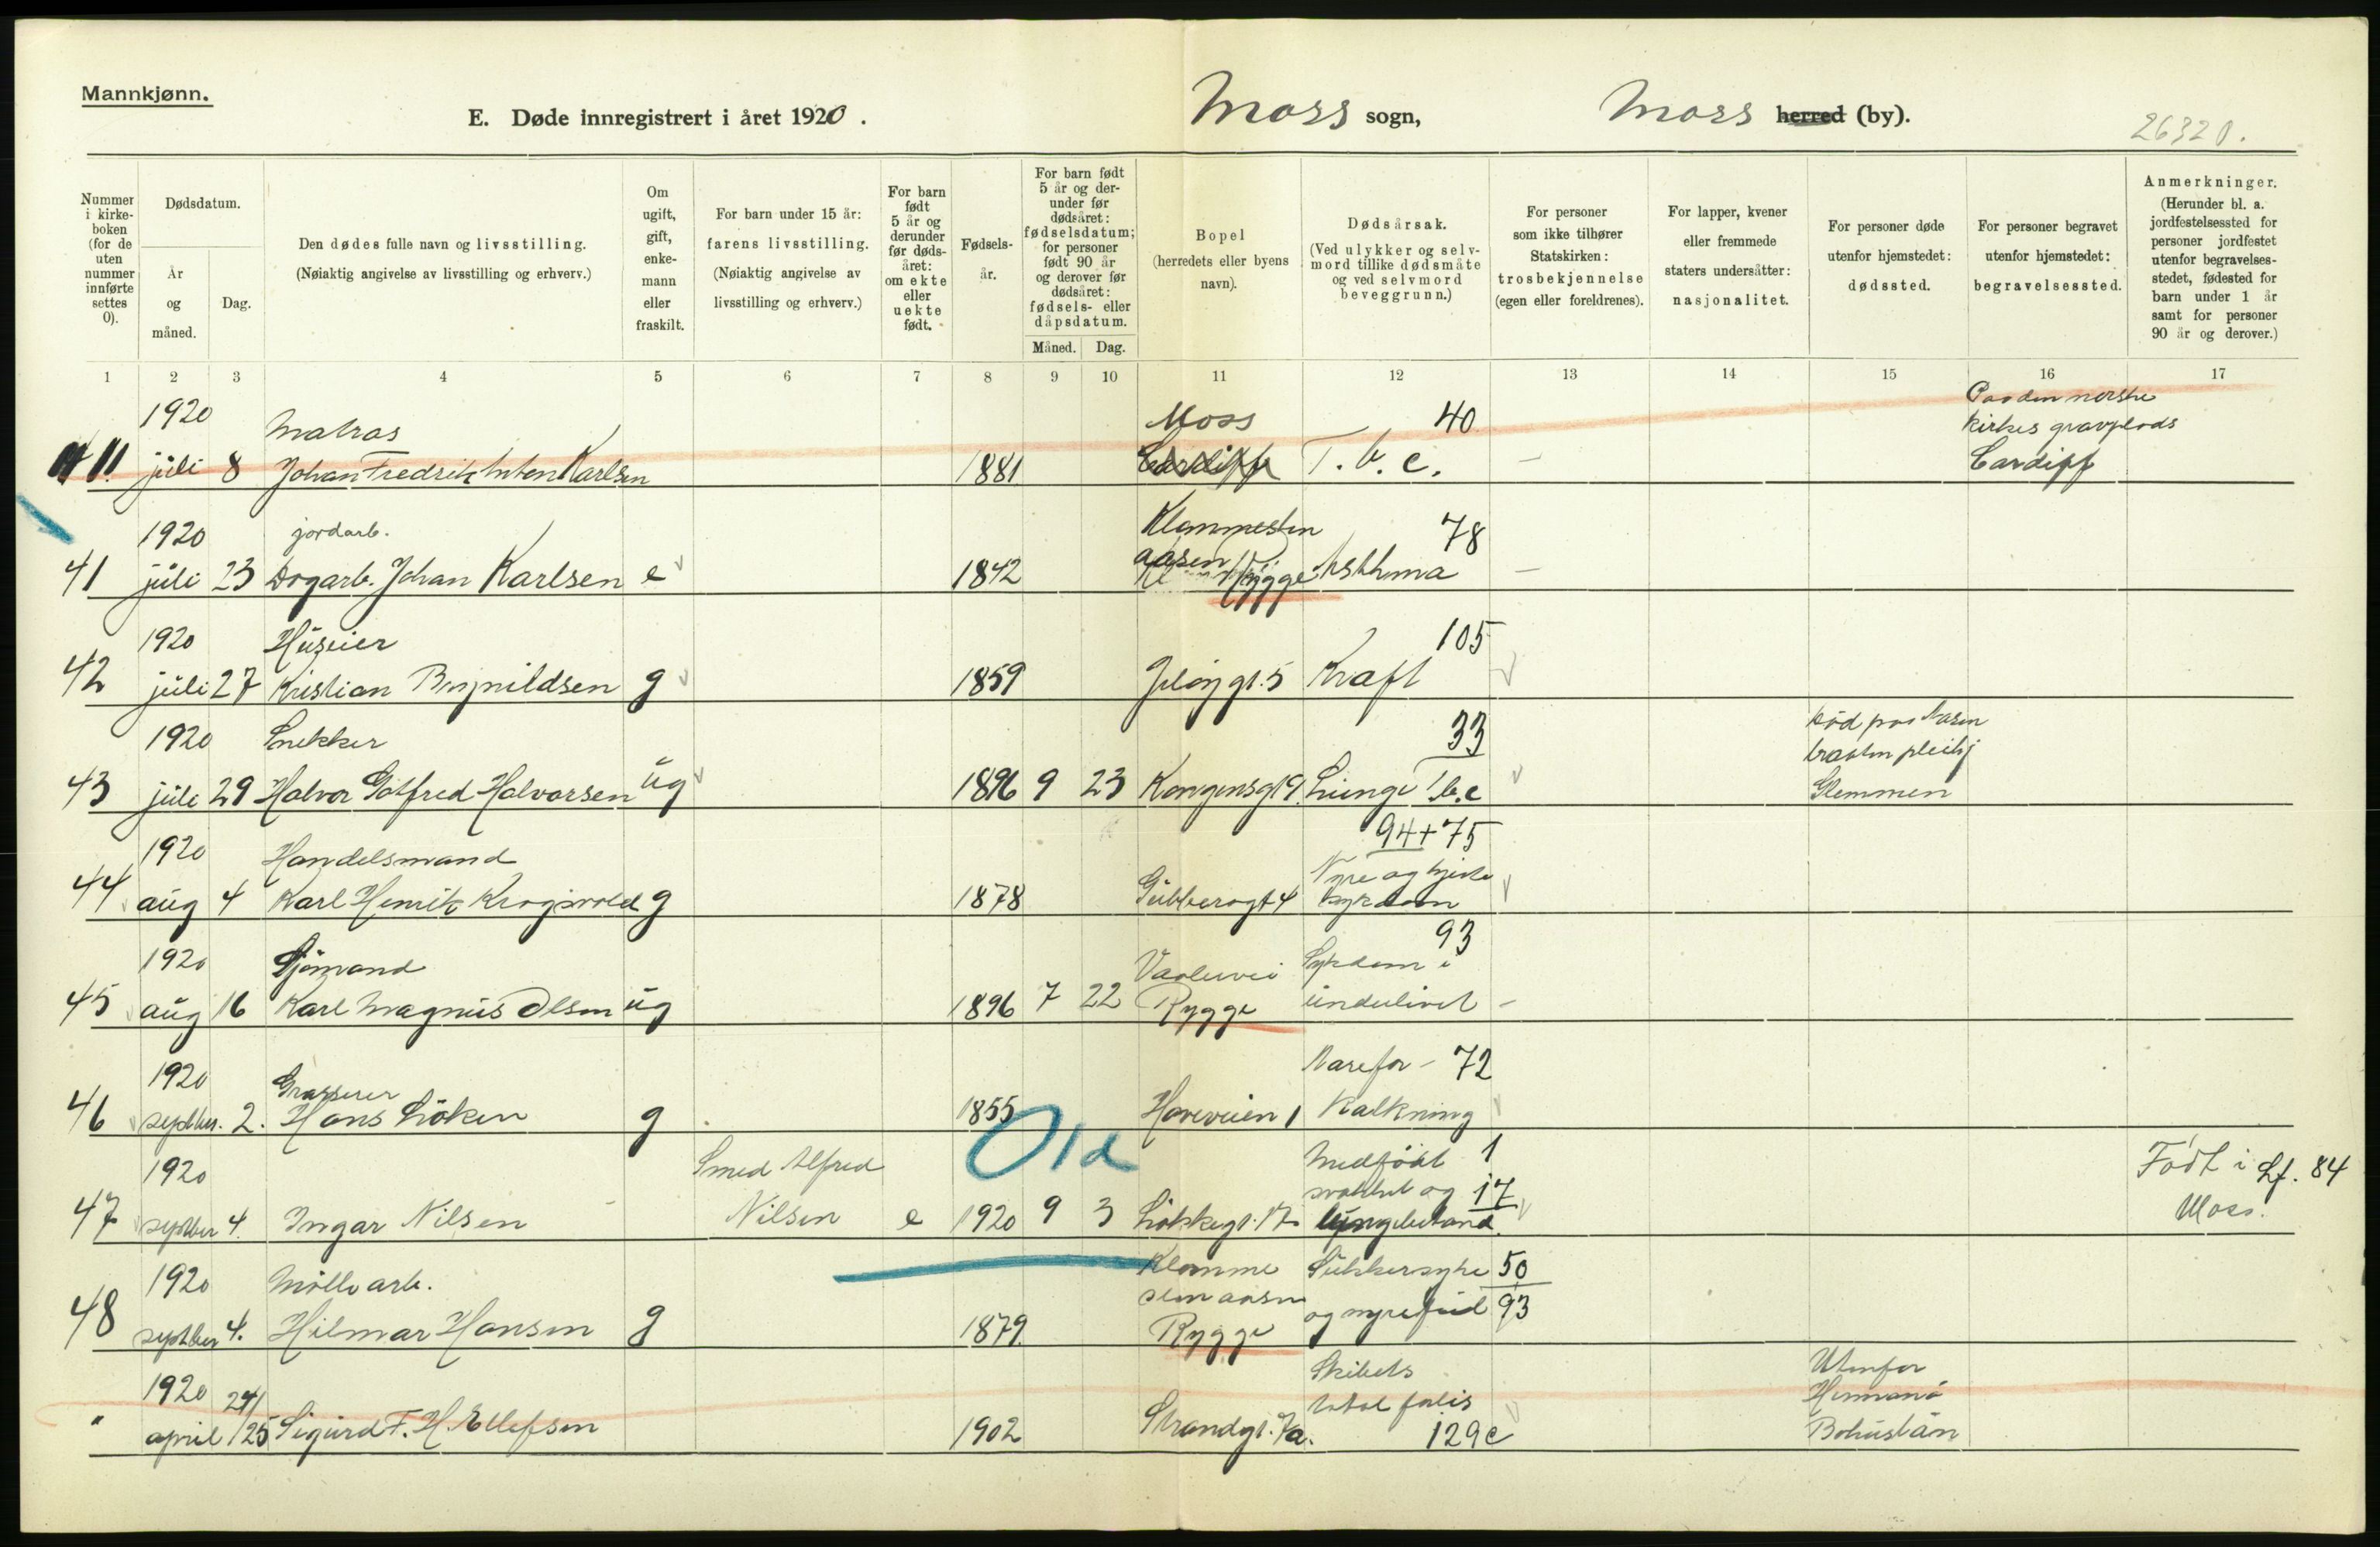 Mannkjønn.
E. Døde innregistrert i året 1920.
Moss sogn,
Moss herred (by).
26320.
Nummer i kirke-boken (for de uten nummer innførte settes 0).
Dødsdatum.
År og måned.
Dag.
Den dødes fulle navn og livsstilling.
(Nøiaktig angivelse av livsstilling og erhverv.)
Om ugift, gift, enke-mann eller fraskilt.
For barn under 15 år: farens livsstilling.
(Nøiaktig angivelse av livsstilling og erhverv.)
For barn født 5 år og derunder før døds-året: om ekte eller uekte født.
Fødsels-år.
For barn født 5 år og der-under før dødsåret: fødselsdatum; for personer født 90 år og derover før dødsåret: fødsels- eller dåpsdatum.
Måned. Dag.
Bopel
(herredets eller byens navn).
Dødsårsak.
(Ved ulykker og selv-mord tillike dødsmåte og ved selvmord beveggrunn.)
For personer som ikke tilhører Statskirken: trosbekjennelse
(egen eller foreldrenes).
For lapper, kvener eller fremmede staters undersåtter: nasjonalitet.
For personer døde utenfor hjemstedet: dødssted.
For personer begravet utenfor hjemstedet: begravelsessted.
Anmerkninger.
(Herunder bl. a. jordfestelsessted for personer jordfestet utenfor begravelses-stedet, fødested for barn under 1 år samt for personer 90 år og derover.)
1 2 3 4 5 6 7 8 9 10 11 12 13 14 15 16 17
1920 Matros Moss 40 Paa den norske
kirkes gravplads
11 juli 8 Johan Fredrik Anton Karlsen 1881 Cardiff T.b.c. — Cardiff
1920 jordarb. Klommesten 78
aasen
41 juli 23 Dagarb. Johan Karlsen e 1842 Rygge Asthma —
1920 Huseier 105
42 juli 27 Kristian Brynildsen g 1859 Jeløygt. 5 Kraft
1920 Snekker 33 Død paa
43 juli 29 Halvor Gotfred Halvorsen ug 1896 9 23 Kongensgt 9 Lunge T.b.c Glemmen
1920 Handelsmand 94+75
Nyre og hjerte
44 aug 4 Karl Henrik Krogsvold g 1878 Gubberogt 4 sykdom
1920 Sjømand 93
Vaalervei Sykdom i
45 aug 16 Karl Magnus Olsen ug 1896 7 22 Rygge underlivet —
1920 Aarefor- 72
46 septber. 2. Hans Løken g 1855 Høveveien 1 Kalkning
Old
1920 Smed Alfred Medfødt 1 Født i Lf. 84
svakhet og 17
47 septber 4. Ingar Nilsen Nilsen e 1920 9 3 Løkkegt. 17 lungebetend. Moss.
1920 Mølle arb. Klomme Sukkersyke 50
sten aasen
48 septber 4. Hilmar Hansen g 1879 Rygge og nyrefeil 93
1920 24/ Skibets Utenfor
total forlis Hermanö
" april /25 Sigurd F. H. Ellefsen 1902 Strandgt. 7a. 129c Bohuslän